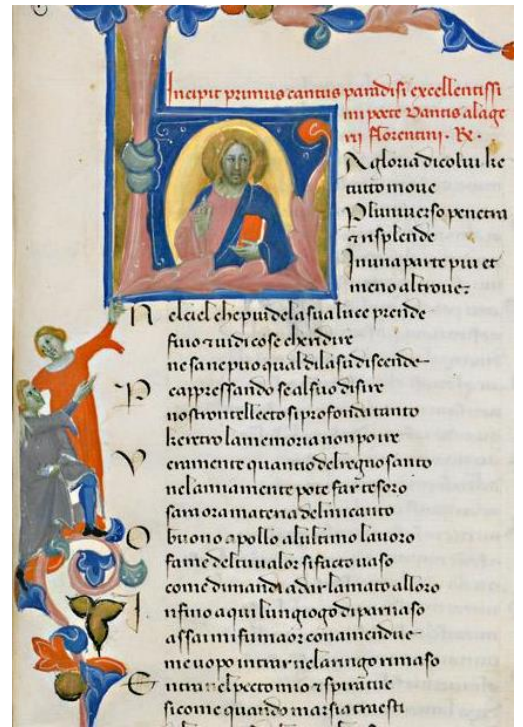 Incipit primus cantus paradisi excellentissi
mi poete Dantis alage
rii florentini. Rx.
A gloria di colui ke
tutto move
Pluniverso penetra
et risplende
In una parte piu et
meno altrove:
Nel ciel che piu dela sua luce prende
fu io et vidi cose che ridire
ne sa ne puo qual di la su discende
Pe appressando se al suo disire
nostro intellecto si profonda tanto
ke retro la memoria non po ire
Veramente quanto del regno santo
nela mia mente pote far tesoro
sara ora materia del mi canto
O buono apollo al ultimo lavoro
fa me del tu valor si facto vaso
come dimandi a dar lamato alloro
Infino a qui lun giogo di parnaso
assai mi fu ma or con amendue
me uopo intrar nel aringo rimaso
Entra nel pecto mio et spira tue
si come quando marsia traesti